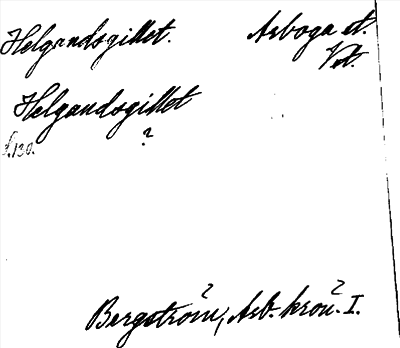 Helgandsgillet. Arboga st.
Vst.
Helgandsgillet
?
s. 130.
Bergström, Arb. krön. I.